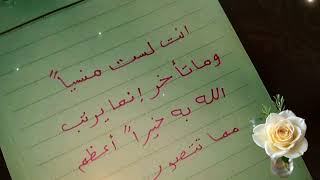 انت لست منسياً
وماتأخر إنما يرتب
الله به خيراً أعظم
مما تتصور